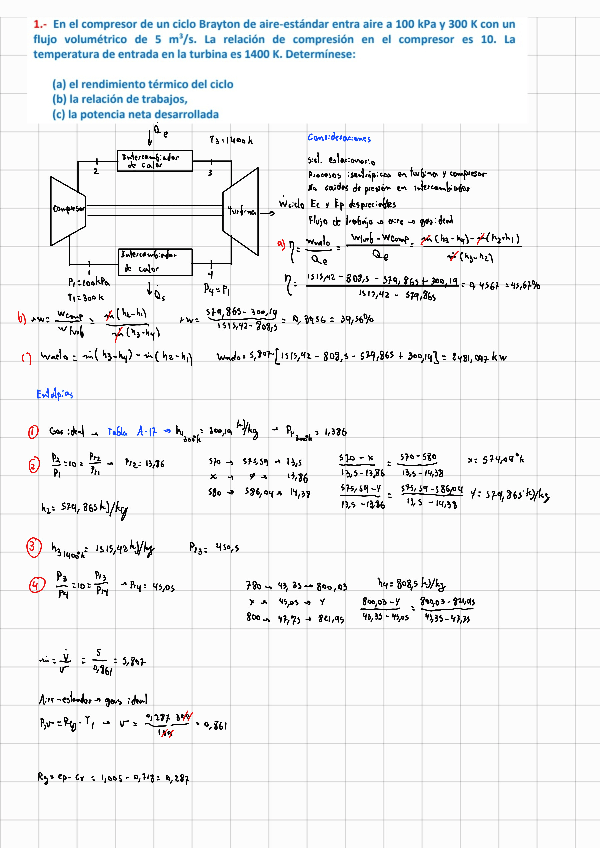 1.- En el compresor de un ciclo Brayton de aire-estándar entra aire a 100 kPa y 300 K con un
flujo volumétrico de 5 m³/s. La relación de compresión en el compresor es 10. La
temperatura de entrada en la turbina es 1400 K. Determínese:
(a) el rendimiento térmico del ciclo
(b) la relación de trabajos,
(c) la potencia neta desarrollada
Q̇e
T3=1400k
Intercambiador
de calor
2
3
Compresor
Turbina
Ẇciclo
Intercambiador
de calor
1
4
P1=100kPa
T1=300k
Q̇s
P4=P1
Consideraciones
Sist. estacionario
Procesos isentrópicos en turbina y compresor
No caídas de presión en intercambiador
Ec y Ep despreciables
Flujo de trabajo → aire → gas ideal
a) η = Wciclo/Qe = (Wturb - Wcomp)/Qe = (ṁ(h3-h4) - ṁ(h2-h1))/(ṁ(h3-h2))
η = (1515,42 - 808,5 - 579,865 + 300,19)/(1515,42 - 579,865) = 0,4567 = 45,67%
b) rw = Wcomp/Wturb = ṁ(h2-h1)/ṁ(h3-h4) rw = (579,865 - 300,19)/(1515,42 - 808,5) = 0,3956 = 39,56%
c) Wciclo = ṁ(h3-h4) - ṁ(h2-h1) Wciclo = 5,807[1515,42 - 808,5 - 579,865 + 300,19] = 2481,097 kW
Entalpías
1 Gas ideal → Tabla A-17 → h1 300ºk = 300,19 kJ/kg → Pr1 300ºk = 1,386
2 P2/P1 = 10 = Pr2/Pr1 → Pr2 = 13,86
570 → 575,59 → 13,5
x → y → 13,86
580 → 586,04 → 14,38
(570 - x)/(13,5 - 13,86) = (570 - 580)/(13,5 - 14,38) x = 574,09ºk
(575,59 - y)/(13,5 - 13,86) = (575,59 - 586,04)/(13,5 - 14,38) y = 579,865 kJ/kg
h2 = 579,865 kJ/kg
3 h3 1400ºk = 1515,42 kJ/kg Pr3 = 450,5
4 P3/P4 = 10 = Pr3/Pr4 → Pr4 = 45,05
780 → 43,35 → 800,03
x → 45,05 → y
800 → 47,75 → 821,95
h4 = 808,5 kJ/kg
(800,03 - y)/(43,35 - 45,05) = (800,03 - 821,95)/(43,35 - 47,75)
ṁ = V̇/v = 5/0,861 = 5,807
Aire-estandar → gas ideal
P1v = Rg · T1 → v = 0,287 · 300/100 = 0,861
Rg = cp - cv = 1,005 - 0,718 = 0,287